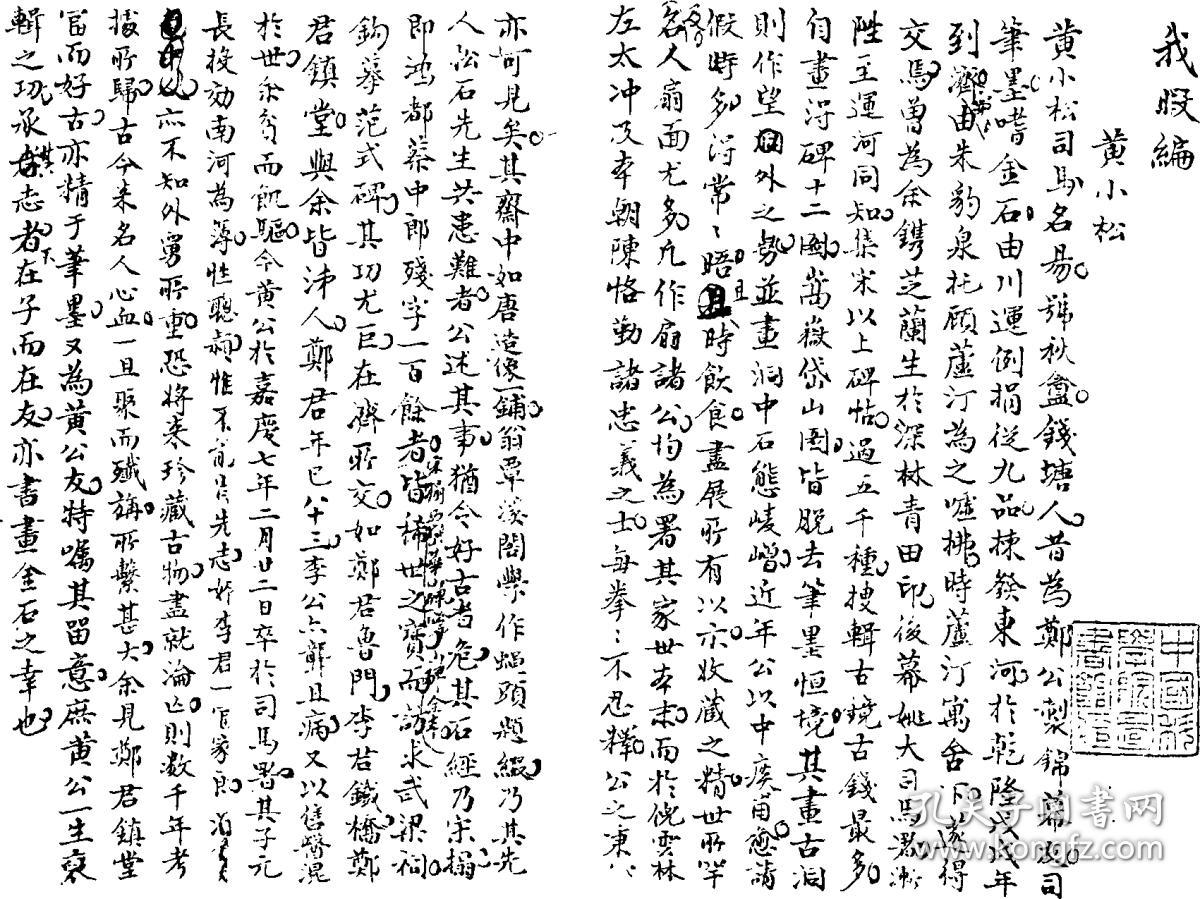 我暇編
黃小松
黃小松司馬名易號秋盦錢塘人昔為鄭公製錦幕友司
筆墨嗜金石由川運例捐從九品揀發東河於乾隆戊戌年
到濟由朱豹泉托顧蘆汀為之噓拂時蘆汀寓舍下遂得
交焉曾為余鐫芝蘭生於深林青田印後幕姚大司馬漸
陞至運河同知集宋以上碑帖過五千種搜輯古鏡古錢最多
自畫得碑十二圖嵩嶽岱山圖皆脫去筆墨恒境其畫古洞
則作望外之勢並畫洞中石態崚嶒近年公以中痰甫愈請
假時多得常晤且時飲食盡展所有以示收藏之精世所罕
名人扇面尤多凡作扇諸公均為署其家世本末而於倪雲林
左太冲及本朝陳恪勤諸忠義之士每拳不忍釋公之東
亦可見矣其齋中如唐造像一鋪翁覃溪閣學作蝸頭題綴乃其先
人松石先生共患難者公述其事猶令好古者危其石經乃宋搨
即鴻都蔡中郎殘字一百餘者皆稀世之寶而訪求武梁祠
鉤摹范式碑其功尤巨在濟所交如鄭君魯門李君鐵橋鄭
君鎮堂與余皆沛人鄭君年已八十三李公六龍且病又以售醫混
於世余貧而飢驅今黃公於嘉慶七年二月廿二日卒於司馬署其子元
長投效南河為簿性聰穎惟不肯先志婿李君一官家郎
亦不知外舅所重恐將來珍藏古物盡就淪亡則数千年考
據所歸古今來名人心血一旦聚而殲旃所繫甚大余見鄭君鎮堂
官而好古亦精于筆墨又為黃公友特囑其留意庶黃公一生裒
輯之功承其志者不在子而在友亦書畫金石之幸也
孔夫子旧书网
www.kongfz.com